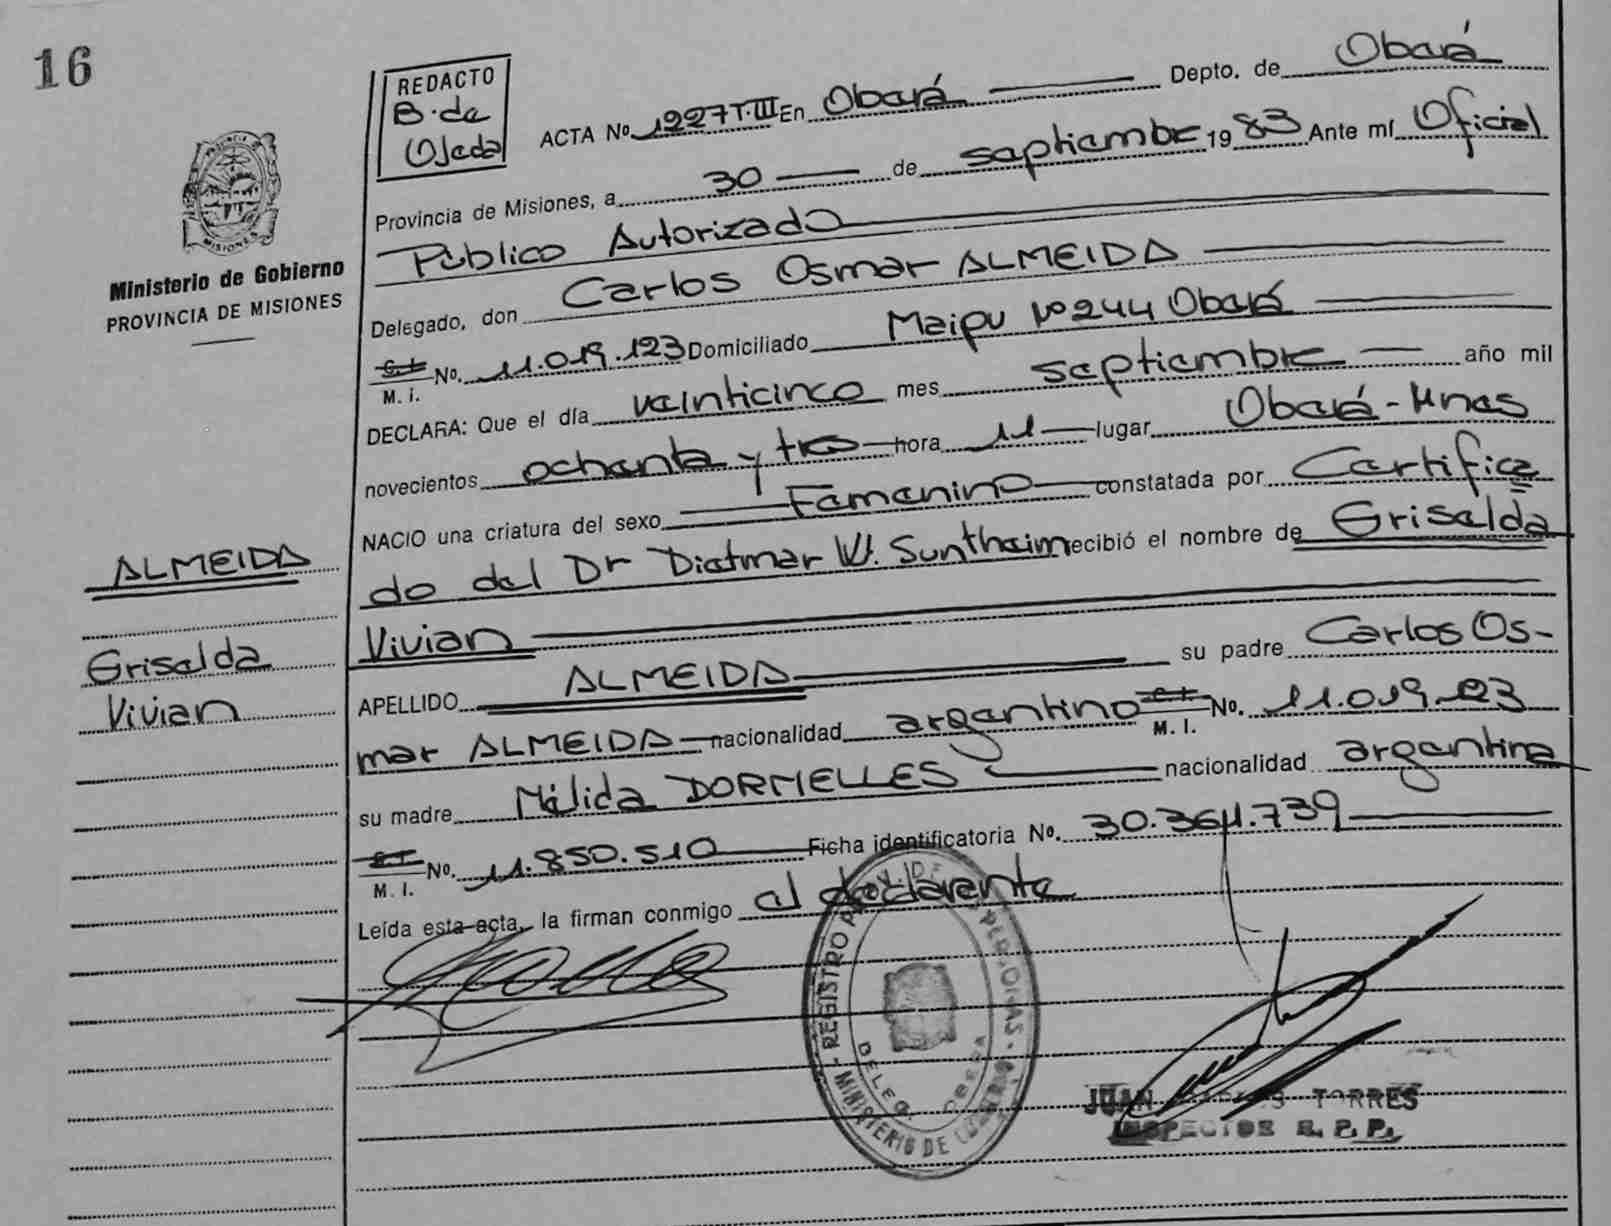 16
REDACTO
B. de
Ojeda
ACTA No 1227 T.III En Oberá Depto. de Oberá
Provincia de Misiones, a 30 de septiembre 1983 Ante mí Oficial
Público Autorizado
Delegado, don Carlos Osmar ALMEIDA
M. I. No. 11.019.123 Domiciliado Maipu Nº 244 Oberá
DECLARA: Que el día veinticinco mes septiembre año mil
novecientos ochenta y tres hora 11 lugar Oberá - Mnes
NACIO una criatura del sexo Femenino constatada por Certifica
do del Dr Dietmar W. Suntheim recibió el nombre de Griselda
Vivian
APELLIDO ALMEIDA su padre Carlos Os-
mar ALMEIDA nacionalidad argentino M. I. No. 11.019.123
su madre Mélida DORNELLES nacionalidad argentina
M. I. No. 11.850.510 Ficha identificatoria No. 30.364.739
Leída esta acta, la firman conmigo el declarente
MISIONES
Ministerio de Gobierno
PROVINCIA DE MISIONES
ALMEIDA
Griselda
Vivian
REGISTRO PERSONAS
MINISTERIO DE
DELEG. OBERA
JUAN TORRES
INSPECTOR R. P. P.